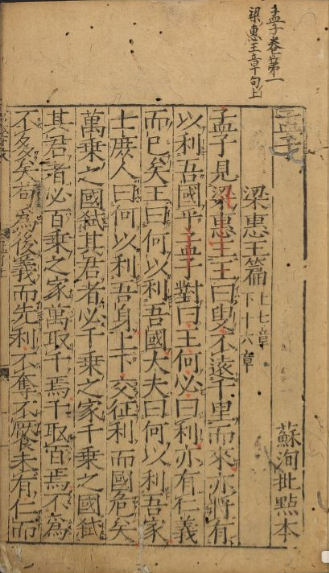 孟子卷第一
梁惠王章句上
孟子
蘇洵批點本
梁惠王篇上七章下十六章
孟子見梁惠王王曰叟不遠千里而來亦將有
以利吾國乎孟子對曰王何必曰利亦有仁義
而已矣王曰何以利吾國大夫曰何以利吾家
士庶人曰何以利吾身上下交征利而國危矣
萬乘之國弑其君者必千乘之家千乘之國弑
其君者必百乘之家萬取千焉千取百焉不為
不多矣苟為後義而先利不奪不饜未有仁而